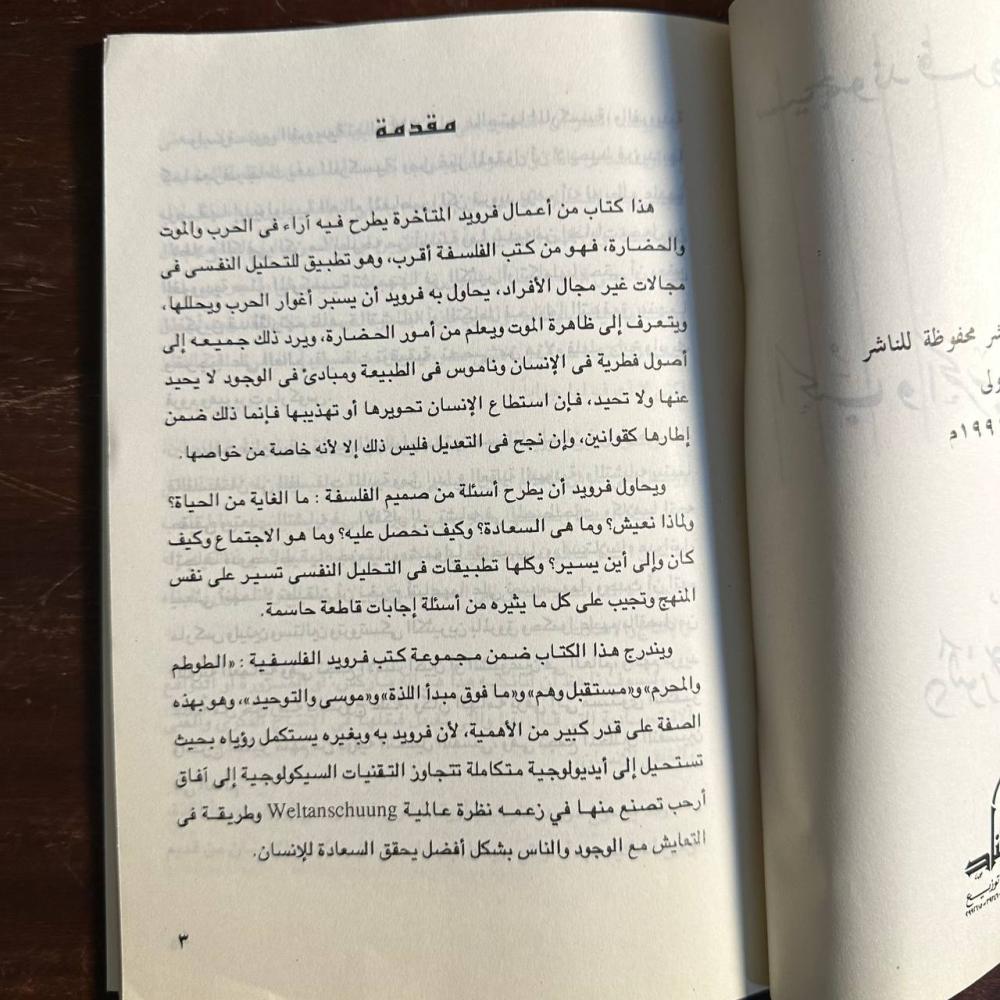 مقدمة
هذا كتاب من أعمال فرويد المتأخرة يطرح فيه آراء فى الحرب والموت
والحضارة، فهو من كتب الفلسفة أقرب، وهو تطبيق للتحليل النفسى فى
مجالات غير مجال الأفراد، يحاول به فرويد أن يسبر أغوار الحرب ويحللها،
ويتعرف إلى ظاهرة الموت ويعلم من أمور الحضارة، ويرد ذلك جميعه إلى
أصول فطرية فى الإنسان وناموس فى الطبيعة ومبادئ فى الوجود لا يحيد
عنها ولا تحيد، فإن استطاع الإنسان تحويرها أو تهذيبها فإنما ذلك ضمن
إطارها كقوانين، وإن نجح فى التعديل فليس ذلك إلا لأنه خاصة من خواصها.
ويحاول فرويد أن يطرح أسئلة من صميم الفلسفة : ما الغاية من الحياة؟
ولماذا نعيش؟ وما هى السعادة؟ وكيف نحصل عليه؟ وما هو الاجتماع وكيف
كان وإلى أين يسير؟ وكلها تطبيقات فى التحليل النفسى تسير على نفس
المنهج وتجيب على كل ما يثيره من أسئلة إجابات قاطعة حاسمة.
ويندرج هذا الكتاب ضمن مجموعة كتب فرويد الفلسفية : «الطوطم
والمحرم» و«مستقبل وهم» و«ما فوق مبدأ اللذة» و«موسى والتوحيد»، وهو بهذه
الصفة على قدر كبير من الأهمية، لأن فرويد به وبغيره يستكمل رؤياه بحيث
تستحيل إلى أيديولوجية متكاملة تتجاوز التقنيات السيكولوجية إلى آفاق
أرحب تصنع منها في زعمه نظرة عالمية Weltanschuung وطريقة فى
التعايش مع الوجود والناس بشكل أفضل يحقق السعادة للإنسان.
٣
محفوظة للناشر